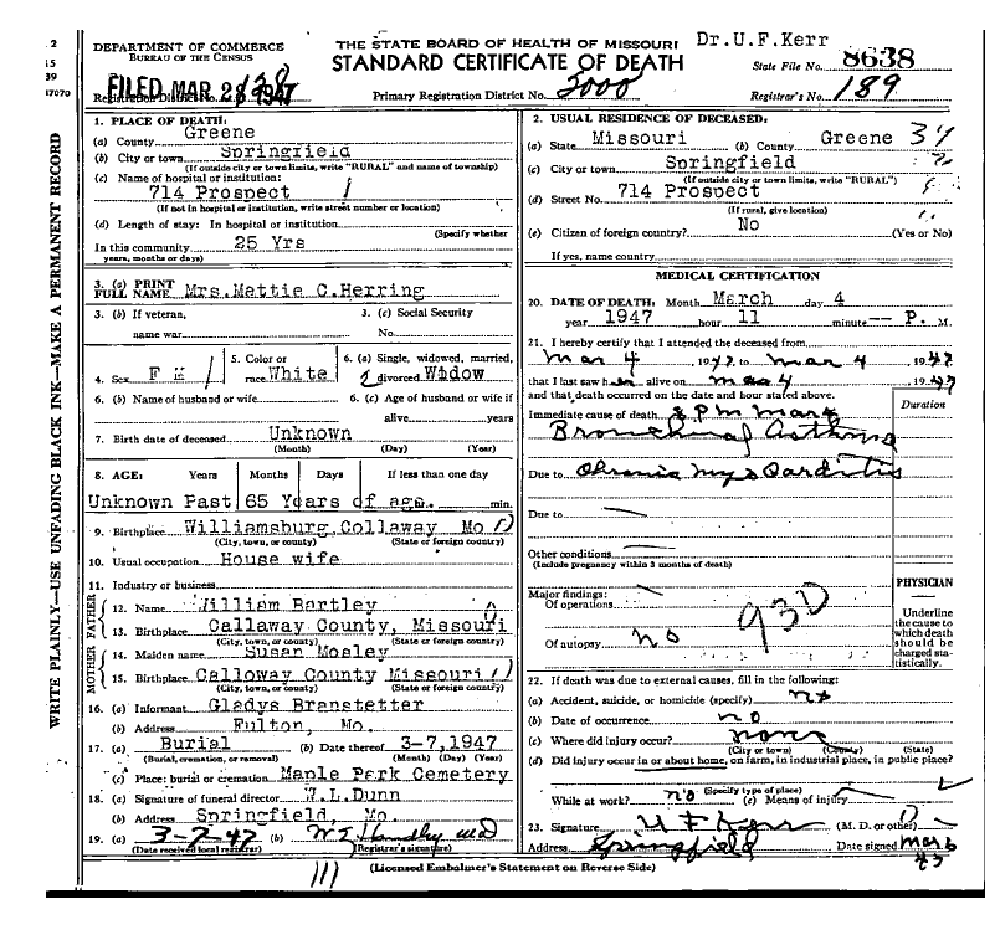 Dr.U.F.Kerr
DEPARTMENT OF COMMERCE
BUREAU OF THE CENSUS
THE STATE BOARD OF HEALTH OF MISSOURI
STANDARD CERTIFICATE OF DEATH
State File No. 8638
FILED MAR 28 1947
Registration District No.
Primary Registration District No. 2000
Registrar's No. 189
WRITE PLAINLY—USE UNFADING BLACK INK—MAKE A PERMANENT RECORD
1. PLACE OF DEATH:
(a) County Greene
(b) City or town Springfield
(If outside city or town limits, write "RURAL" and name of township)
(c) Name of hospital or institution:
714 Prospect
(If not in hospital or institution, write street number or location)
(d) Length of stay: In hospital or institution
(Specify whether
In this community 25 Yrs
years, months or days)
3. (a) PRINT FULL NAME Mrs.Mattie C.Herring
3. (b) If veteran,
name war
3. (c) Social Security
No.
4. Sex F
5. Color or
race White
6. (a) Single, widowed, married,
2 divorced Widow
6. (b) Name of husband or wife
6. (c) Age of husband or wife if
alive years
7. Birth date of deceased Unknown
(Month) (Day) (Year)
8. AGE: Years Months Days If less than one day
Unknown Past 65 Years of age. min.
9. Birthplace Williamsburg,Collaway Mo
(City, town, or county) (State or foreign country)
10. Usual occupation House wife
11. Industry or business
FATHER
12. Name William Bartley
13. Birthplace Callaway County, Missouri
(City, town, or county) (State or foreign country)
MOTHER
14. Maiden name Susan Mosley
15. Birthplace Calloway County Missouri
(City, town, or county) (State or foreign country)
16. (a) Informant Gladys Branstetter
(b) Address Fulton, Mo.
17. (a) Burial (b) Date thereof 3-7,1947
(Burial, cremation, or removal) (Month) (Day) (Year)
(c) Place: burial or cremation Maple Park Cemetery
18. (a) Signature of funeral director W.L.Dunn
(b) Address Springfield, Mo.
19. (a) 3-7-47 (b) W E Handley MD
(Date received local registrar) (Registrar's signature)
2. USUAL RESIDENCE OF DECEASED:
(a) State Missouri (b) County Greene 39
(c) City or town Springfield
(If outside city or town limits, write "RURAL")
(d) Street No. 714 Prospect
(If rural, give location)
(e) Citizen of foreign country? No (Yes or No)
If yes, name country
MEDICAL CERTIFICATION
20. DATE OF DEATH. Month March day 4
year 1947 hour 11 minute -- P. M.
21. I hereby certify that I attended the deceased from
Mar 4 1947 to Mar 4 1947
that I last saw her alive on Mar 4 1947
and that death occurred on the date and hour stated above.
Duration
Immediate cause of death
Bronchial Asthma
Due to Chronic Myocarditis
Due to
Other conditions
(Include pregnancy within 3 months of death)
Major findings:
Of operations
Of autopsy no
93D
PHYSICIAN
Underline
the cause to
which death
should be
charged sta-
tistically.
22. If death was due to external causes, fill in the following:
(a) Accident, suicide, or homicide (specify) no
(b) Date of occurrence no
(c) Where did injury occur? none
(City or town) (County) (State)
(d) Did injury occur in or about home, on farm, in industrial place, in public place?
(Specify type of place)
While at work? no (e) Means of injury
23. Signature U F Kerr (M. D. or other)
Address Springfield Date signed Mar 6
47
(Licensed Embalmer's Statement on Reverse Side)